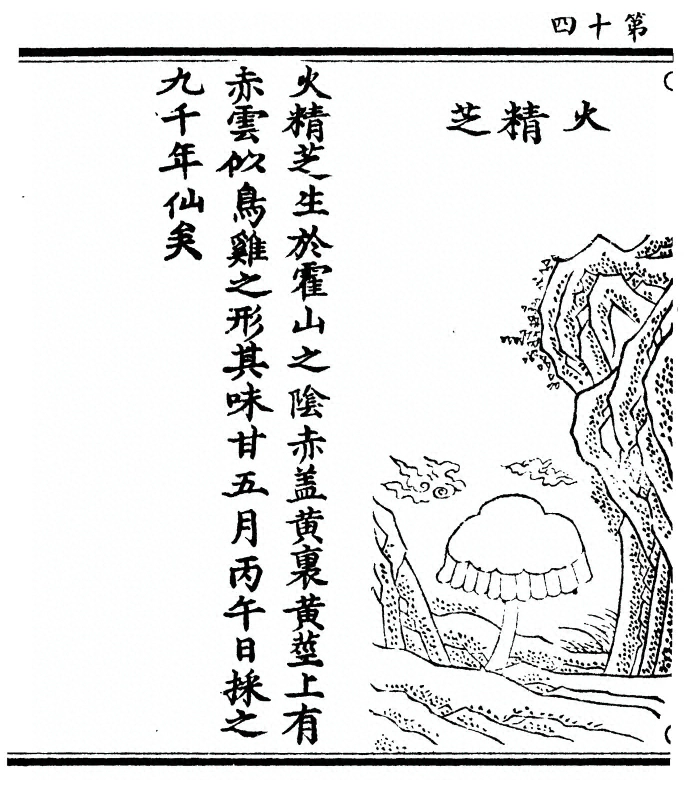 第十四
火精芝
火精芝生於霍山之陰赤盖黄裏黄莖上有
赤雲似鳥雞之形其味甘五月丙午日採之
九千年仙矣